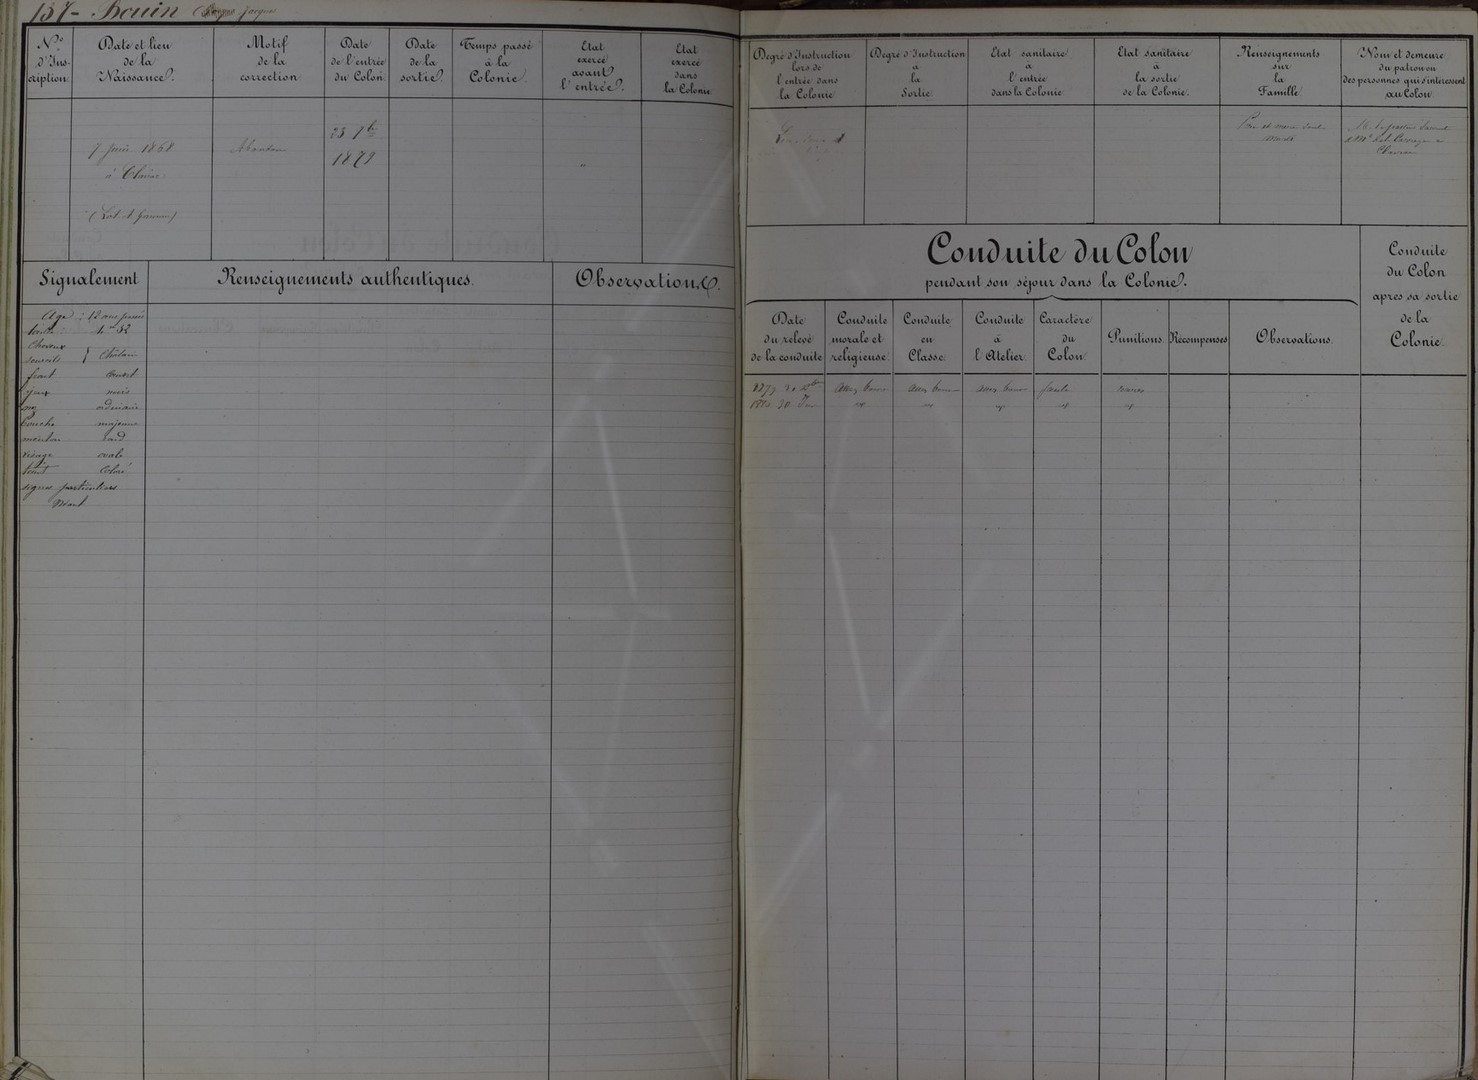 137- Bouin Jacques
N.º d'Inscription.
Date et lieu de la Naissance.
Motif de la correction
Date de l'entrée du Colon.
Date de la sortie.
Temps passé à la Colonie.
Etat exercé avant l'entrée.
Etat exercé dans la Colonie
Degré d'Instruction lors de l'entrée dans la Colonie
Degré d'Instruction à la Sortie
Etat sanitaire à l'entrée dans la Colonie
Etat sanitaire à la sortie de la Colonie.
Renseignements sur la Famille
Nom et demeure du patron ou des personnes qui s'intéressent au Colon
7 juin 1868
à Clairac
(Lot et Garonne)
23 9bre
1879
Père et mère sont morts
Signalement
Renseignements authentiques.
Observations.
Age : 13 ans passés
Cheveux
sourcils } Châtain
front couvert
yeux
nez ordinaire
bouche moyenne
menton rond
visage ovale
teint Coloré
signes particuliers
Néant
Conduite du Colon
pendant son séjour dans la Colonie.
Conduite du Colon apres sa sortie de la Colonie
Date du relevé de la conduite
Conduite morale et religieuse.
Conduite en Classe.
Conduite à l'Atelier
Caractère du Colon.
Punitions.
Récompenses
Observations.
1879 30 Xbre assez bonne assez bonne assez bonne facile rares
1880 30 " " " " "